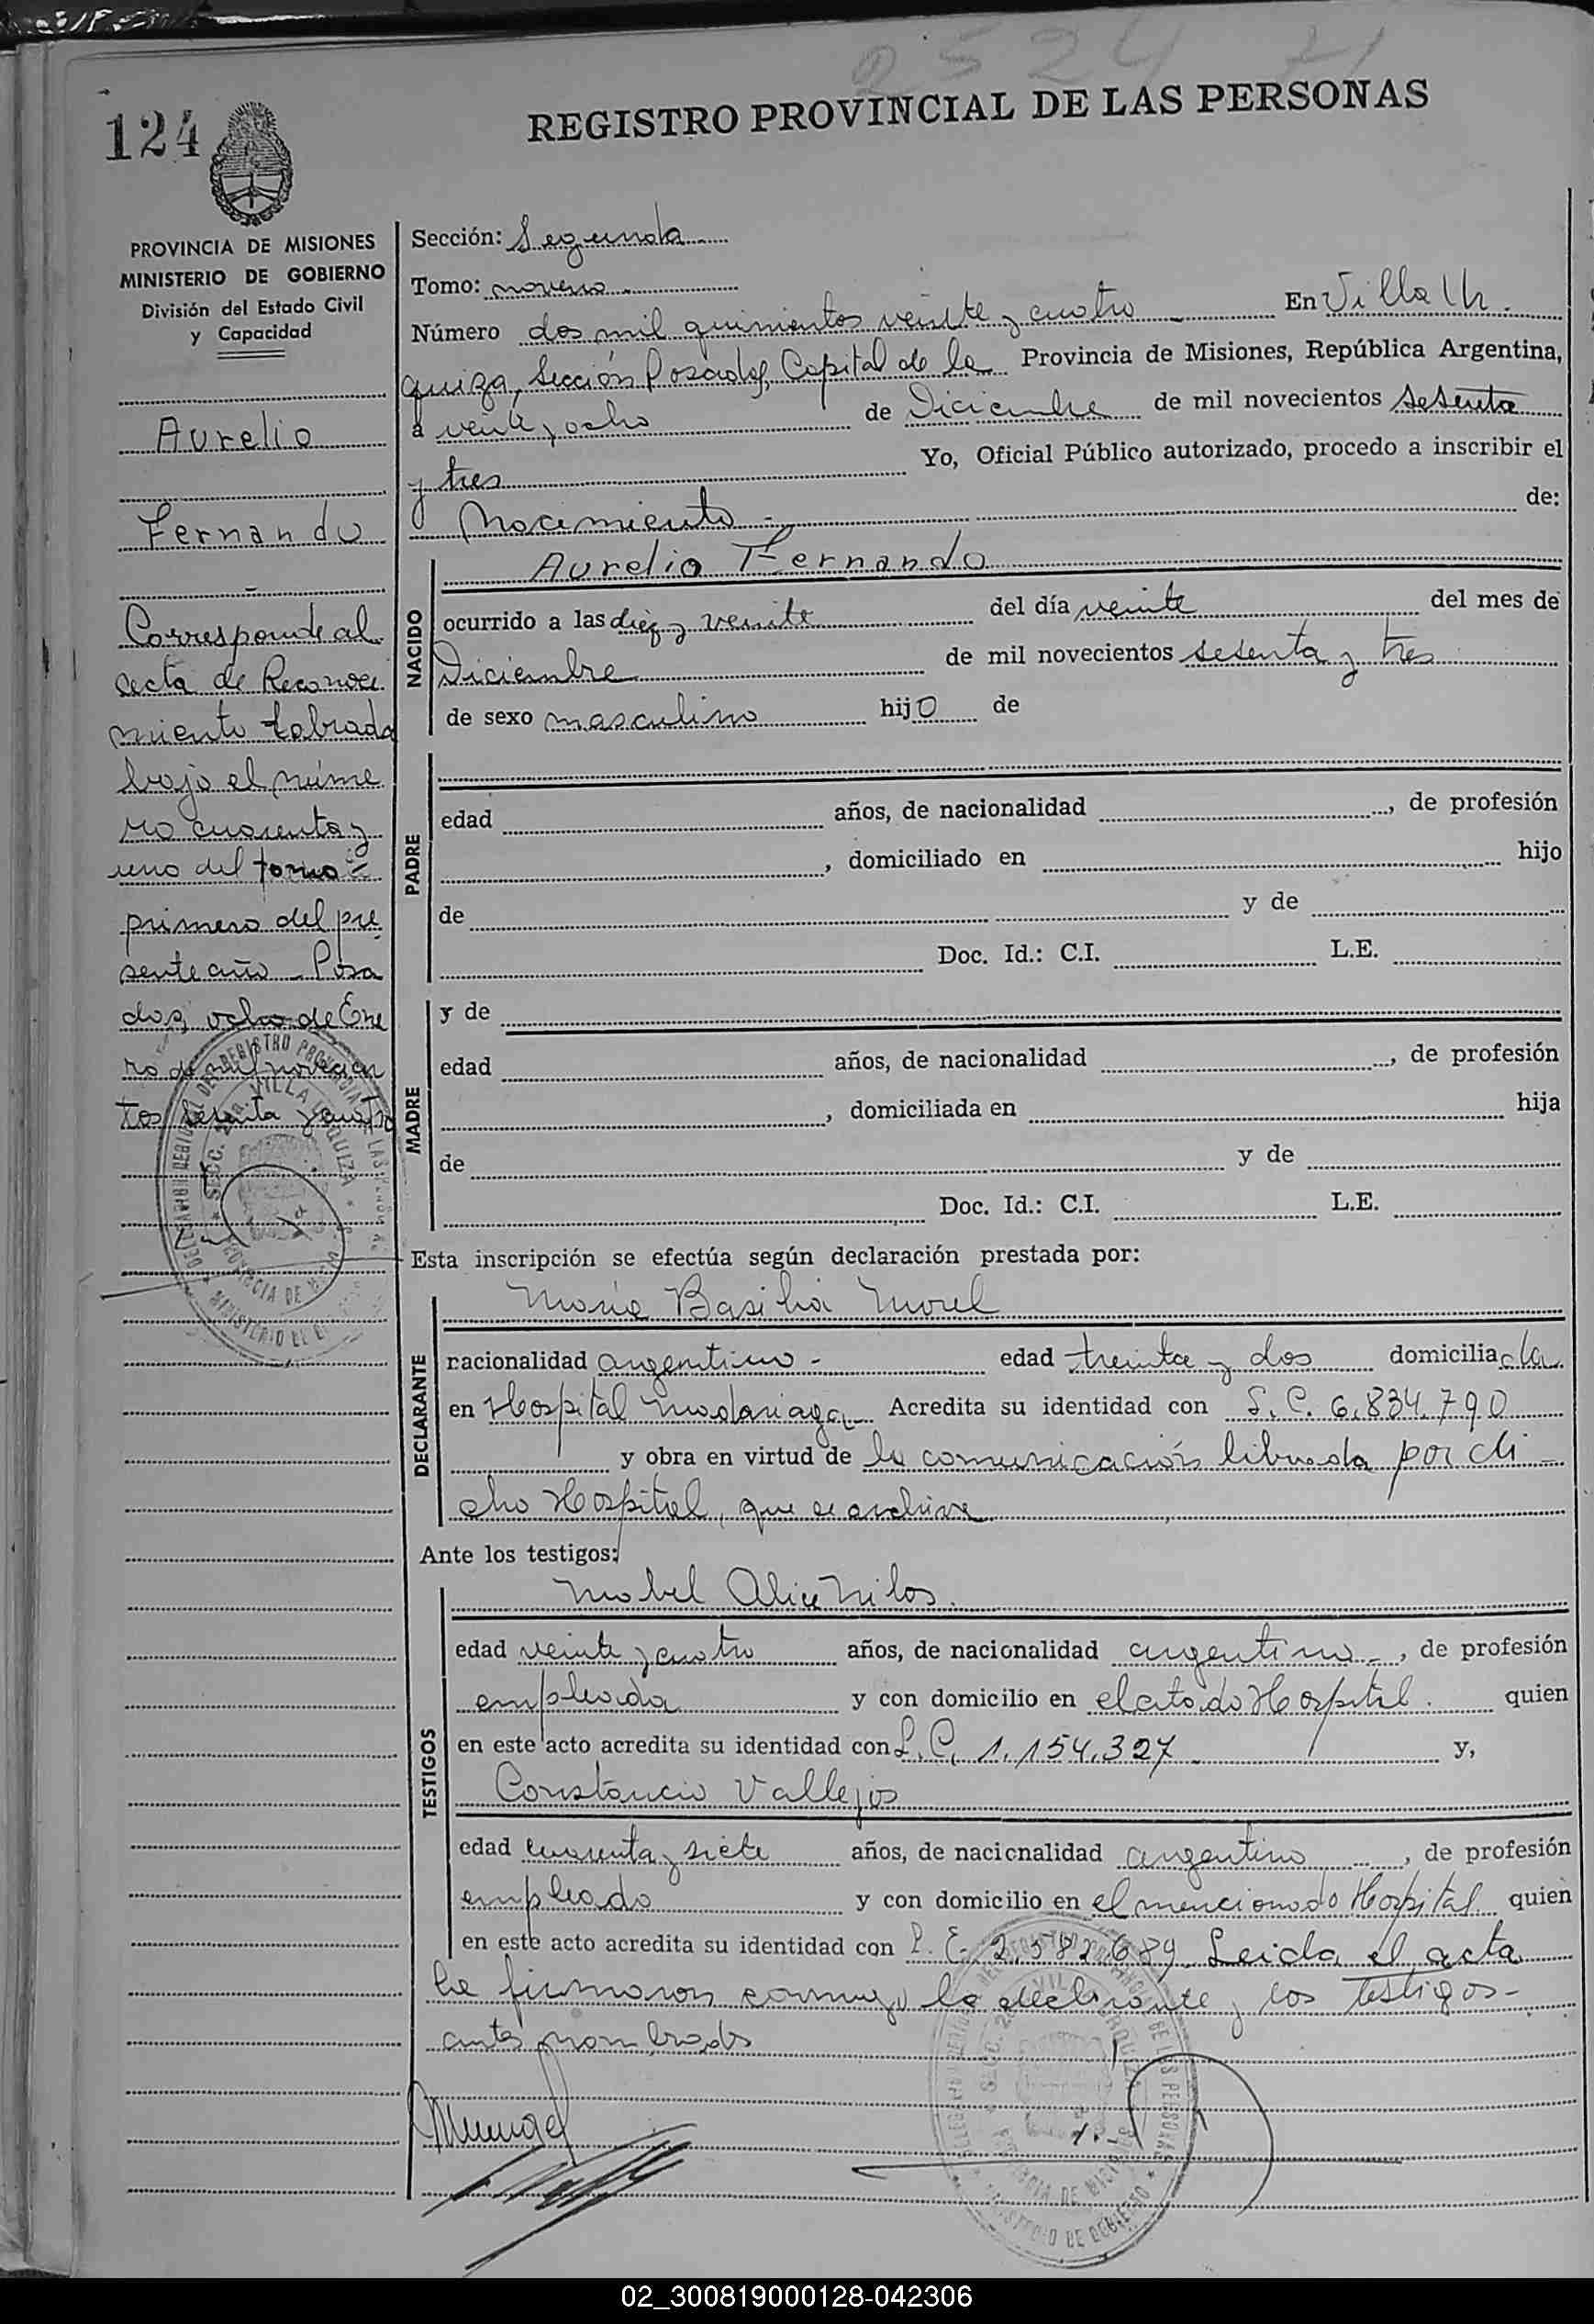 2524 71
124
REGISTRO PROVINCIAL DE LAS PERSONAS
PROVINCIA DE MISIONES
MINISTERIO DE GOBIERNO
División del Estado Civil
y Capacidad
Aurelio
Fernando
Corresponde al
acta de Reconoci
miento labrada
bajo el núme
ro cuarenta y
uno del tomo
primero del pre
sente año - Posa
das, ocho de Ene
ro de mil novecien
tos setenta y cuatro
Sección: Segunda
Tomo: noveno
Número dos mil quinientos veinte y cuatro En Villa Ur
quiza, Sección Posadas, Capital de la Provincia de Misiones, República Argentina,
a veinte y ocho de Diciembre de mil novecientos setenta
y tres Yo, Oficial Público autorizado, procedo a inscribir el
Nacimiento de:
NACIDO
Aurelio Fernando
ocurrido a las diez y veinte del día veinte del mes de
Diciembre de mil novecientos setenta y tres
de sexo masculino hijo de
PADRE
edad años, de nacionalidad , de profesión
, domiciliado en hijo
de y de
Doc. Id.: C.I. L.E.
MADRE
y de
edad años, de nacionalidad , de profesión
, domiciliada en hija
de y de
Doc. Id.: C.I. L.E.
Esta inscripción se efectúa según declaración prestada por:
DECLARANTE
María Basilia Morel
nacionalidad argentina - edad treinta y dos domiciliada
en Hospital Madariaga Acredita su identidad con L.C. 6.834.790
y obra en virtud de la comunicación librada por di
cho Hospital, que se archiva
Ante los testigos:
TESTIGOS
Mabel Alice Milos
edad veinte y cuatro años, de nacionalidad argentina -, de profesión
empleada y con domicilio en el citado Hospital. quien
en este acto acredita su identidad con L.C. 1.154.327 y,
Constancio Vallejos
edad cuarenta y siete años, de nacionalidad argentino, de profesión
empleado y con domicilio en el mencionado Hospital quien
en este acto acredita su identidad con L.E. 2.582.689 Leida el acta
la firmaron conmigo la declarante y los testigos -
antes nombrados
02_300819000128-042306